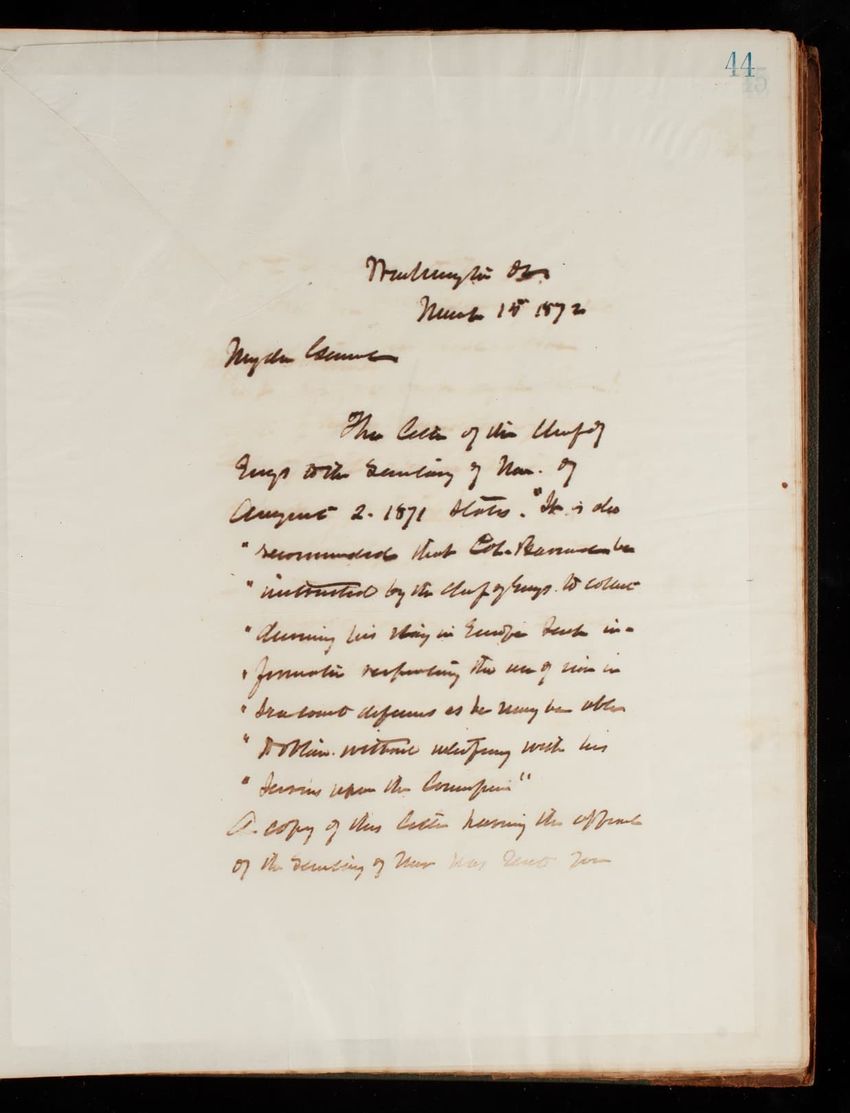 44
Washington DC.
March 15 1872
My dear General
The letter of the Chief of
Engs to the Secretary of War. of
August 2. 1871 states. "It is also
" recommended that Col. Barnard be
" instructed by the Chief of Engs. to collect
" during his stay in Europe such in-
" formation respecting the use of iron in
" Sea coast defences as he may be able
" to obtain. without interfering with his
" Services upon the Commission"
A copy of this letter having the approval
of the Secretary of War was sent you